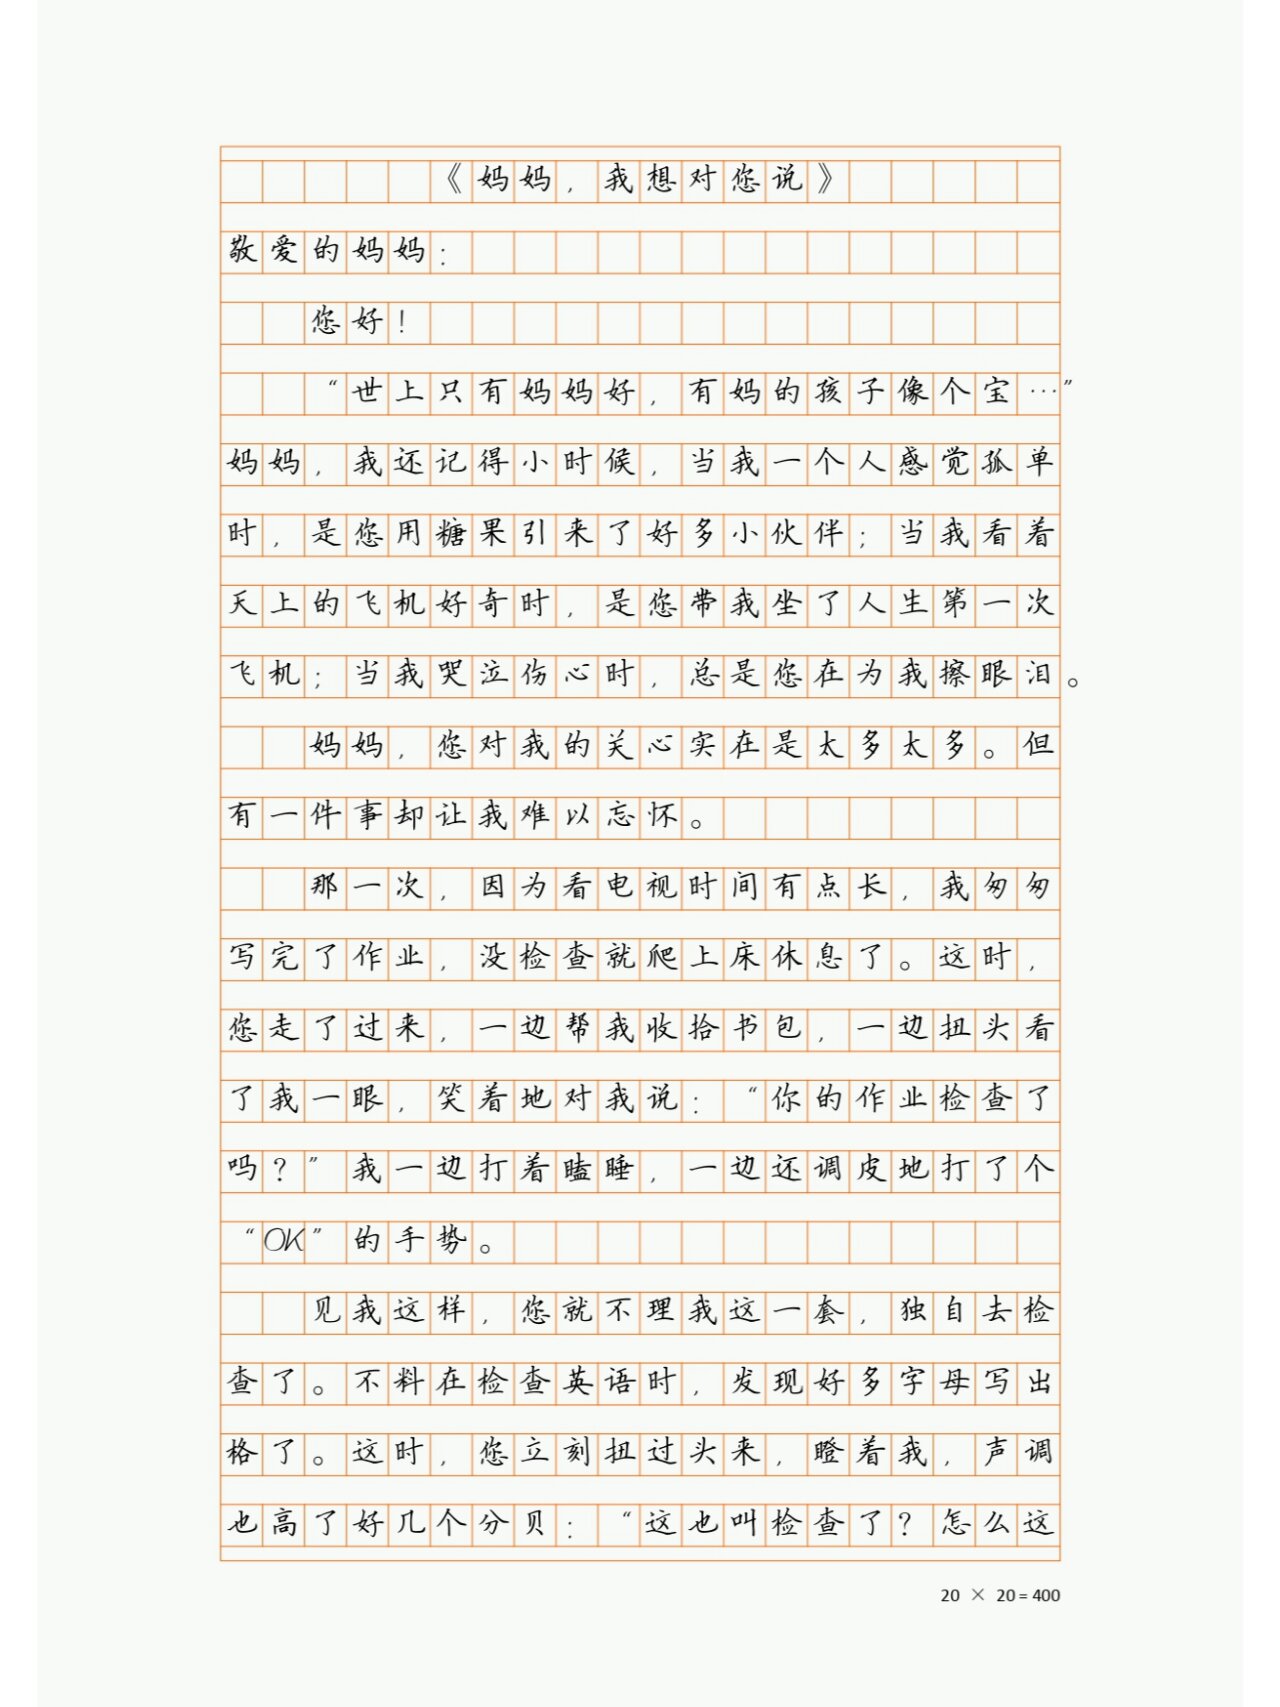 《妈妈，我想对您说》
敬爱的妈妈：
您好！
“世上只有妈妈好，有妈的孩子像个宝…”
妈妈，我还记得小时候，当我一个人感觉孤单
时，是您用糖果引来了好多小伙伴；当我看着
天上的飞机好奇时，是您带我坐了人生第一次
飞机；当我哭泣伤心时，总是您在为我擦眼泪。
妈妈，您对我的关心实在是太多太多。但
有一件事却让我难以忘怀。
那一次，因为看电视时间有点长，我匆匆
写完了作业，没检查就爬上床休息了。这时，
您走了过来，一边帮我收拾书包，一边扭头看
了我一眼，笑着地对我说：“你的作业检查了
吗？”我一边打着瞌睡，一边还调皮地打了个
“OK”的手势。
见我这样，您就不理我这一套，独自去检
查了。不料在检查英语时，发现好多字母写出
格了。这时，您立刻扭过头来，瞪着我，声调
也高了好几个分贝：“这也叫检查了？怎么这
20 × 20 = 400